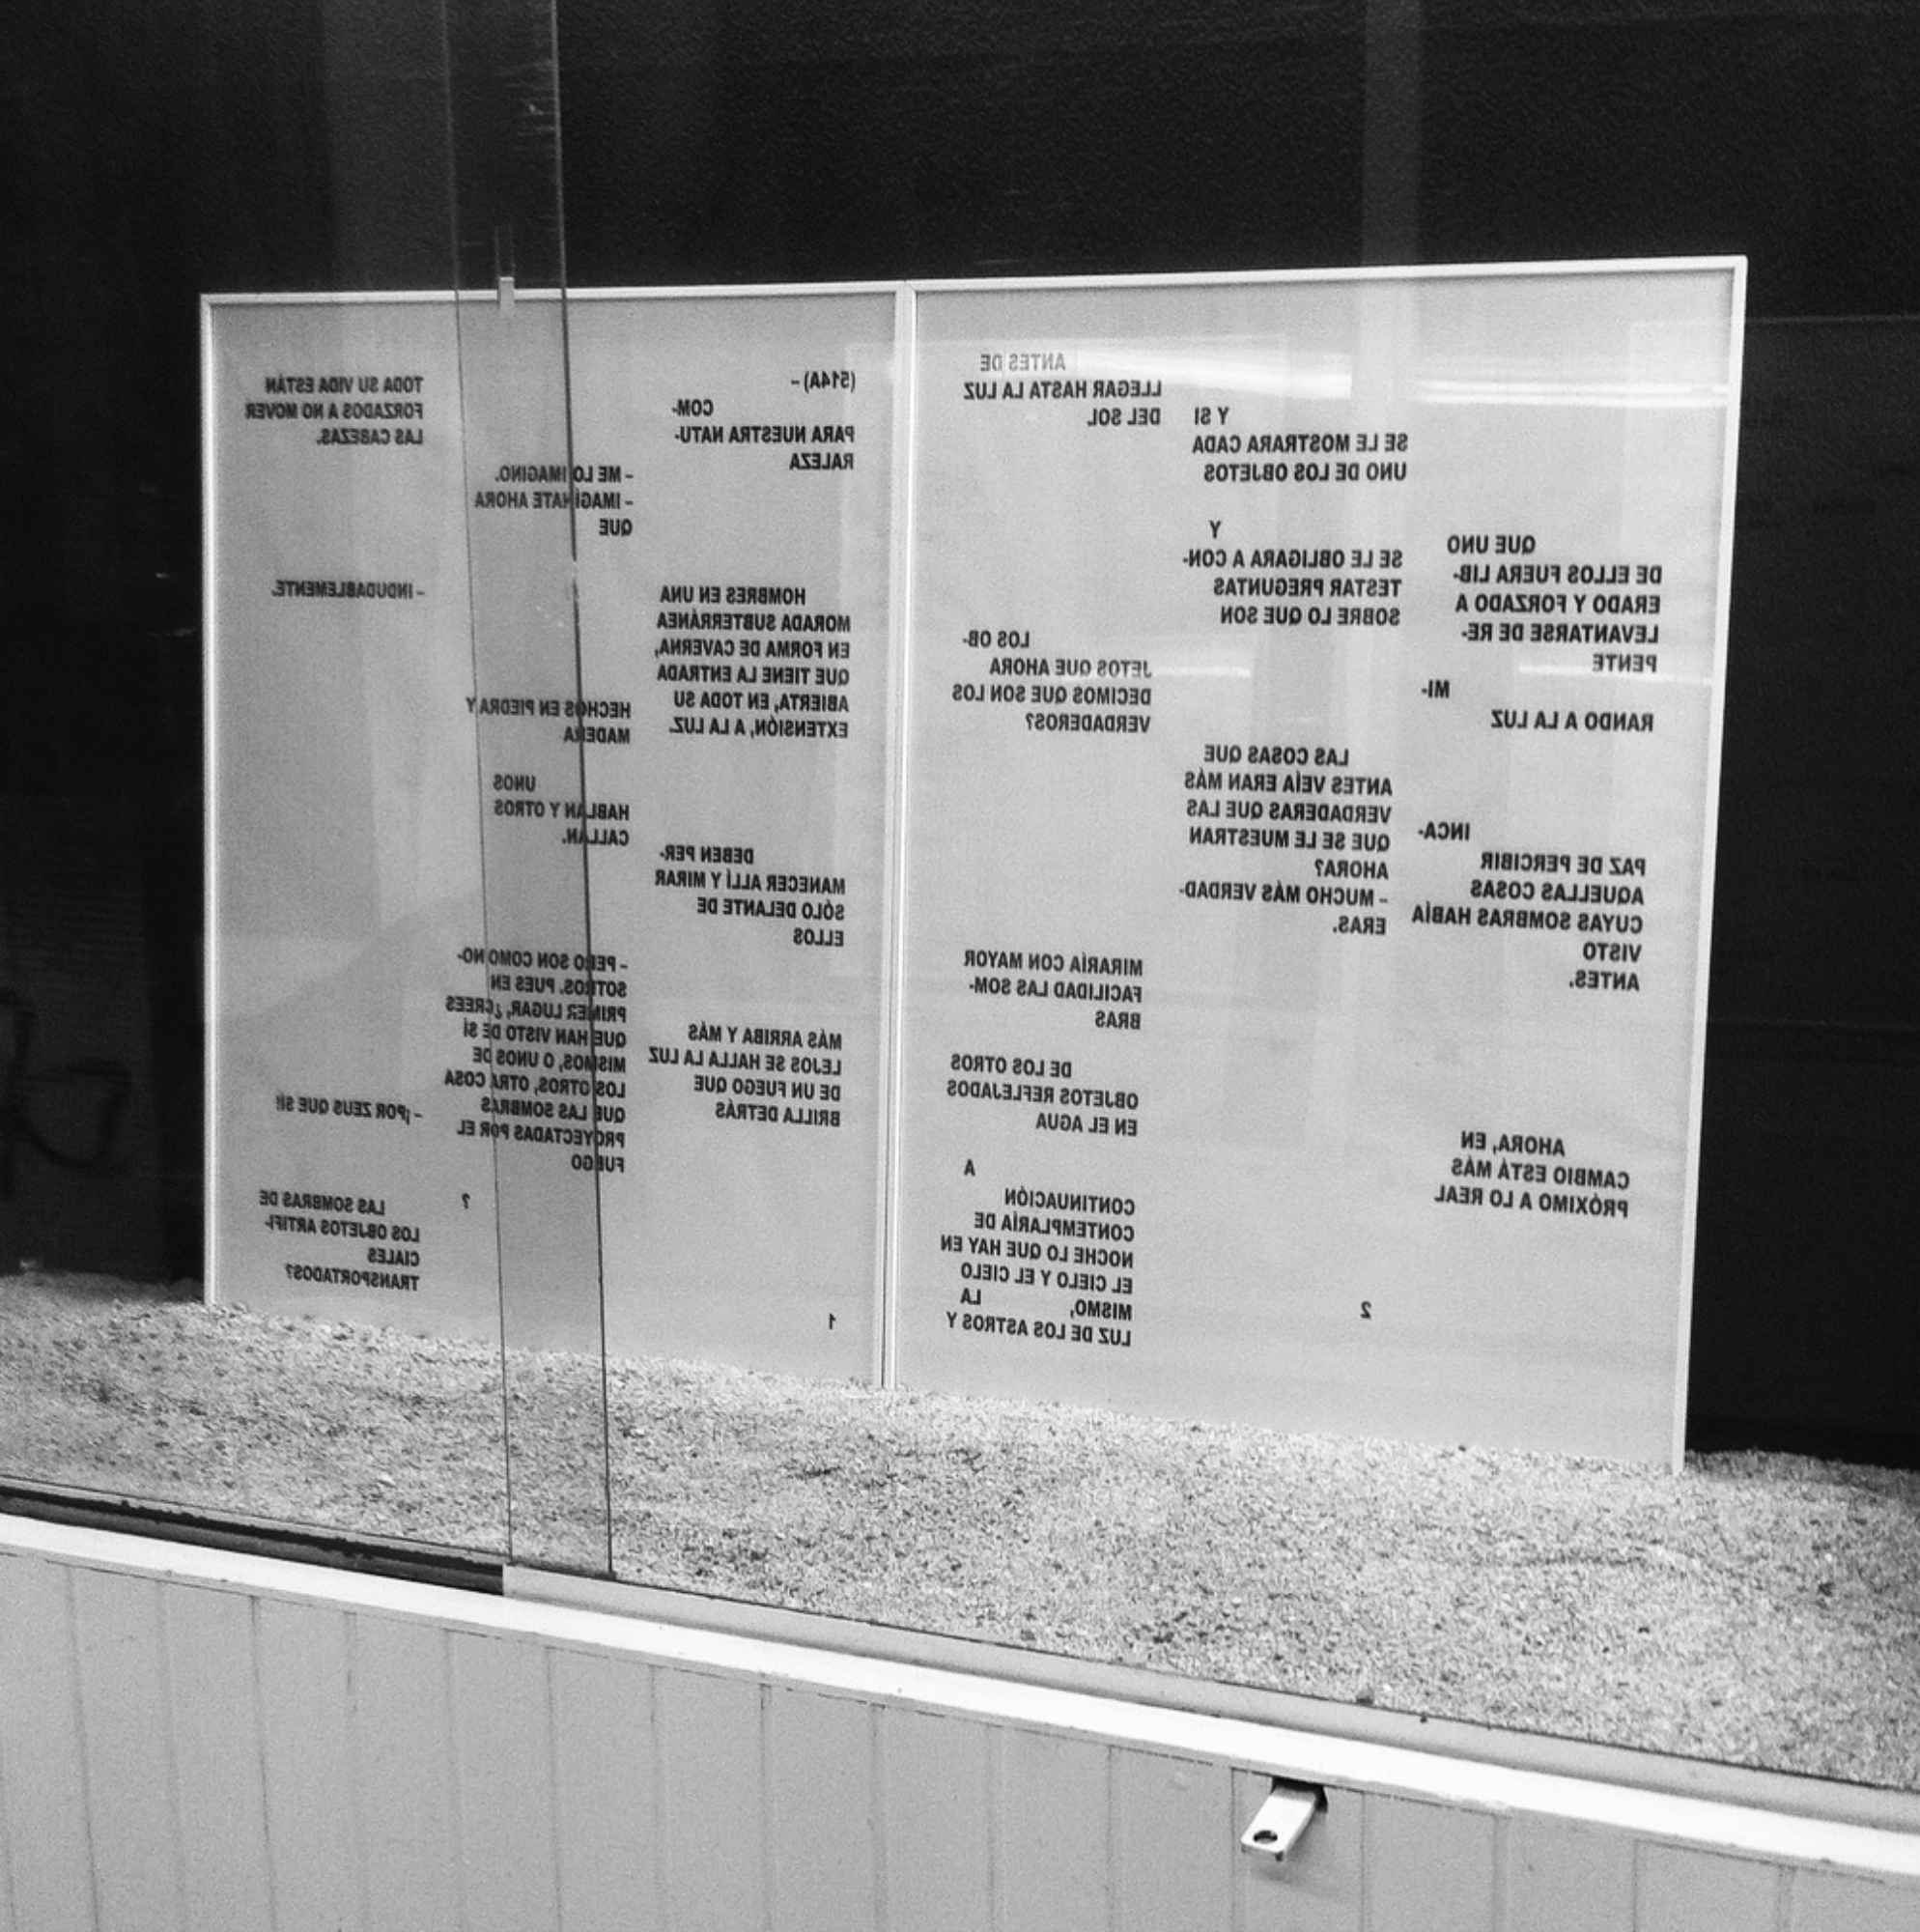 (514A) –
COM-
PARA NUESTRA NATU-
RALEZA
HOMBRES EN UNA
MORADA SUBTERRÁNEA
EN FORMA DE CAVERNA,
QUE TIENE LA ENTRADA
ABIERTA, EN TODA SU
EXTENSIÓN, A LA LUZ.
DEBEN PER-
MANECER ALLÍ Y MIRAR
SÓLO DELANTE DE
ELLOS
MÁS ARRIBA Y MÁS
LEJOS SE HALLA LA LUZ
DE UN FUEGO QUE
BRILLA DETRÁS
1
– ME LO IMAGINO.
– IMAGÍNATE AHORA
QUE
HECHOS EN PIEDRA Y
MADERA
UNOS
HABLAN Y OTROS
CALLAN.
– PERO SON COMO NO-
SOTROS. PUES EN
PRIMER LUGAR, ¿CREES
QUE HAN VISTO DE SÍ
MISMOS, O UNOS DE
LOS OTROS, OTRA COSA
QUE LAS SOMBRAS
PROYECTADAS POR EL
FUEGO
?
TODA SU VIDA ESTÁN
FORZADOS A NO MOVER
LAS CABEZAS.
– INDUDABLEMENTE.
– ¡POR ZEUS QUE SÍ!
LAS SOMBRAS DE
LOS OBJETOS ARTIFI-
CIALES
TRANSPORTADOS?
QUE UNO
DE ELLOS FUERA LIB-
ERADO Y FORZADO A
LEVANTARSE DE RE-
PENTE
MI-
RANDO A LA LUZ
INCA-
PAZ DE PERCIBIR
AQUELLAS COSAS
CUYAS SOMBRAS HABÍA
VISTO
ANTES.
AHORA, EN
CAMBIO ESTÁ MÁS
PRÓXIMO A LO REAL
Y SI
SE LE MOSTRARA CADA
UNO DE LOS OBJETOS
Y
SE LE OBLIGARA A CON-
TESTAR PREGUNTAS
SOBRE LO QUE SON
LAS COSAS QUE
ANTES VEÍA ERAN MÁS
VERDADERAS QUE LAS
QUE SE LE MUESTRAN
AHORA?
– MUCHO MÁS VERDAD-
ERAS.
2
ANTES DE
LLEGAR HASTA LA LUZ
DEL SOL
LOS OB-
JETOS QUE AHORA
DECIMOS QUE SON LOS
VERDADEROS?
MIRARÍA CON MAYOR
FACILIDAD LAS SOM-
BRAS
DE LOS OTROS
OBJETOS REFLEJADOS
EN EL AGUA
A
CONTINUACIÓN
CONTEMPLARÍA DE
NOCHE LO QUE HAY EN
EL CIELO Y EL CIELO
MISMO, LA
LUZ DE LOS ASTROS Y